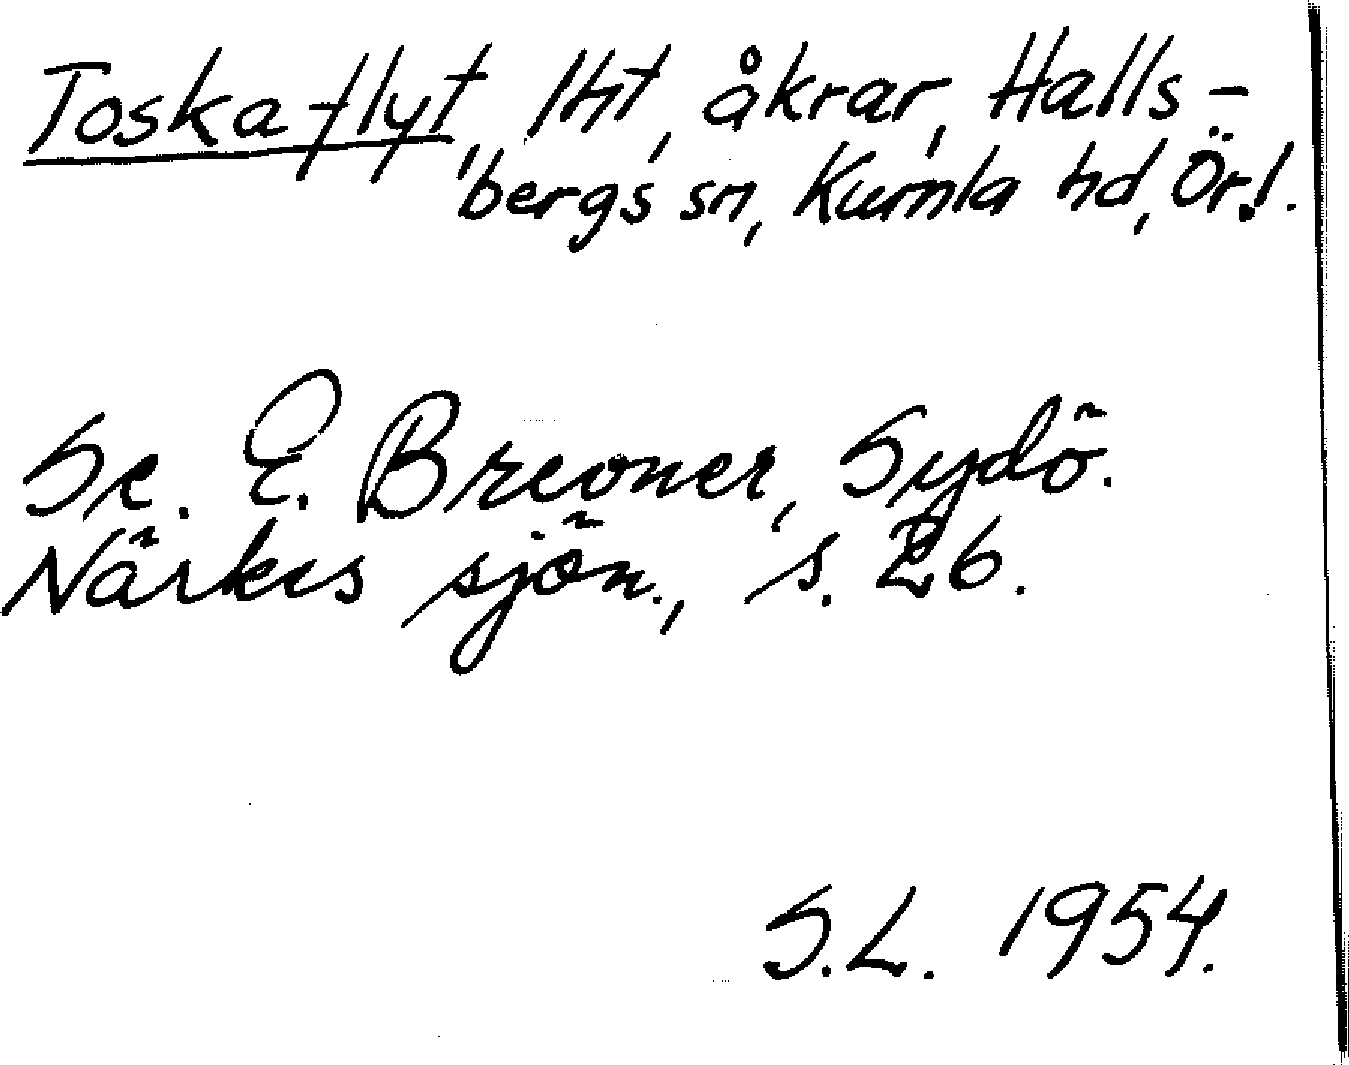 Toskaflyt, lht, åkrar, Halls-
bergs sn, Kumla hd, Örl.
Se. E. Brevner, Sydö.
Närkes sjön., s. 26.
S.L. 1954.